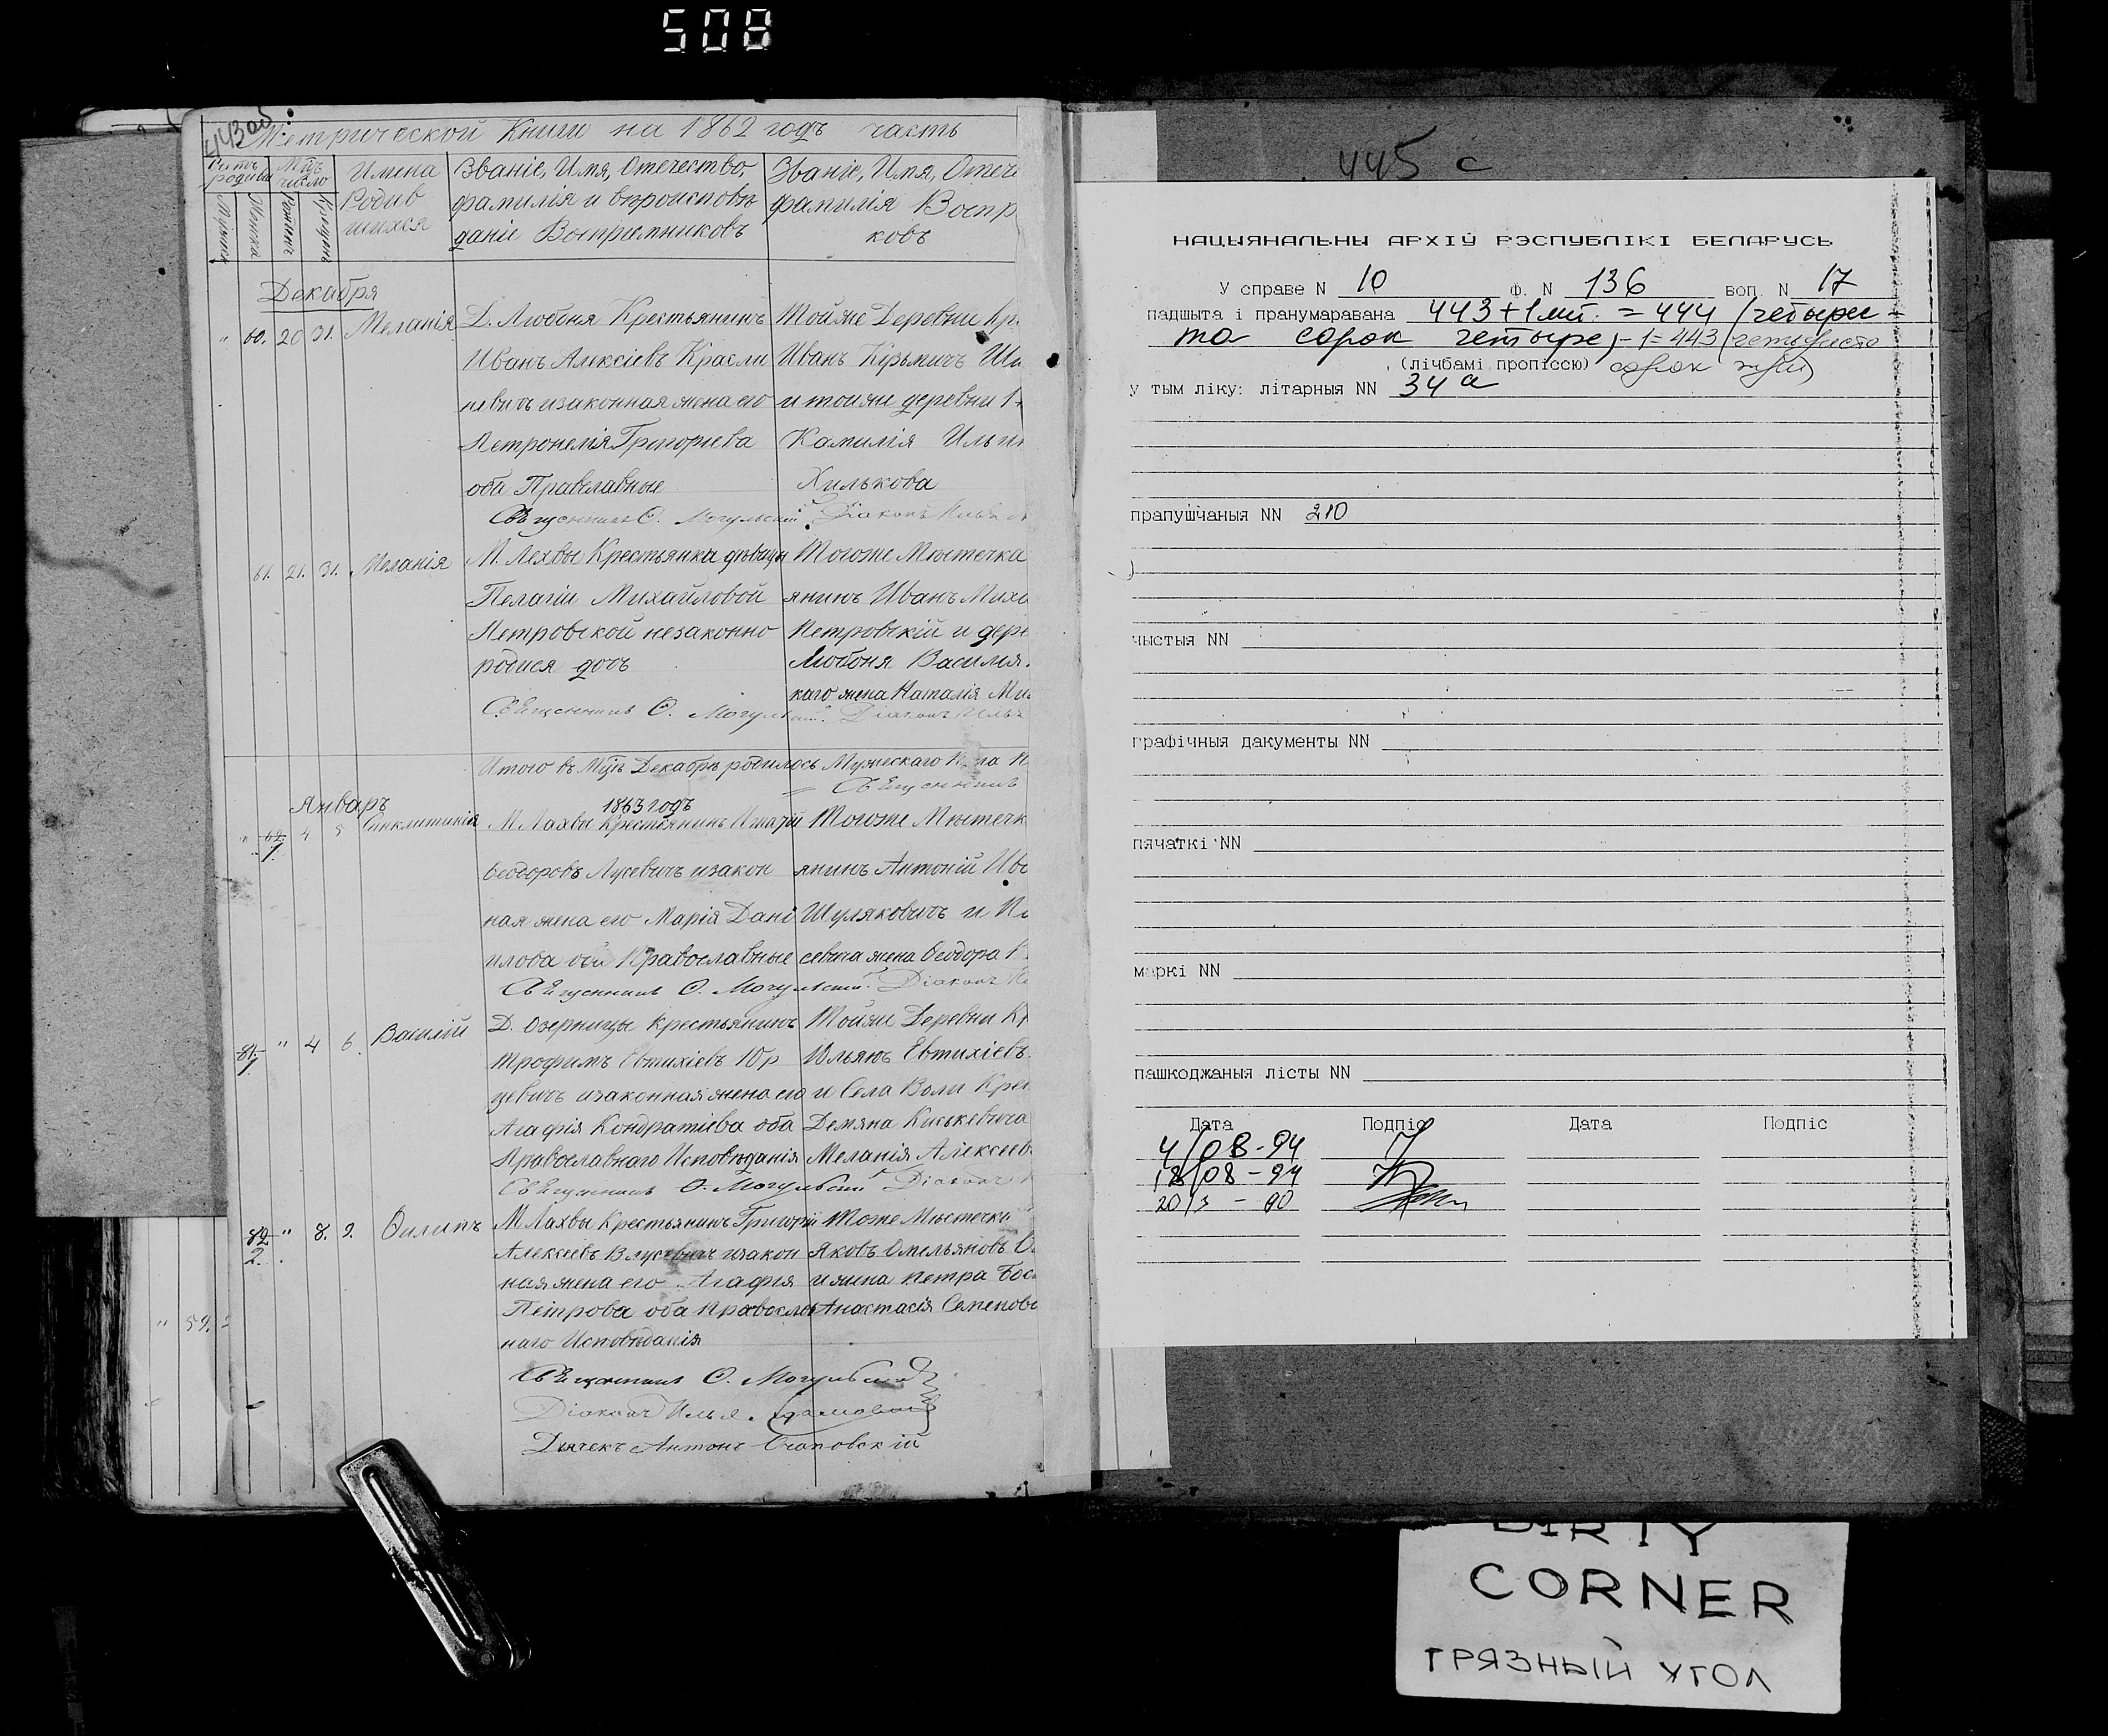 508
443 об
Метрической Книги на 1862 годъ часть
Счетъ родивш
Мцъ число
Имена Родившихся
Званіе, Имя, Отечество,
фамилія и вѣроисповѣ
даніе Воспріемниковъ
Званіе, Имя, Отече
фамилія Воспр
ковъ
Декабря
" 60. 20 31. Меланія
Д. Любоня Крестьянинъ
Иванъ Алексіевъ Красли
невичъ изаконная жена его
Петронелія Григорiева
оби Правславные
Тойже Деревни Кр.
Иванъ Кузьмичъ
и тойже деревни
Камилія Ильи
Хилькова
Священникъ О. Могульскій Діаконъ Илья
61. 21. 31. Меланія
М. Лехвы Крестьянка дѣвица
Пелагіи Михайловой
Петровской незаконно
родися дочь
Тогоже Мѣстечка
янинъ Иванъ Миха
Петровскій и дере
Любоня Василия.
каго жена Наталія Ми
Священникъ О. Могульскій. Діаконъ Илья
Итого въ Мцѣ Декабрѣ родилось Мужескаго
Священникъ
Январъ
1863 годъ
" 62 1 4 5 Синклитикія
М Лахвы Крестьянинъ Игнатій
Ѳеодоровъ Лусевичъ изакон
ная жена его Марія Дані
илова оби Православные
Тогоже Мѣстечк
янинъ Антоній Ив
Шуляковичъ и
севича жена Ѳеодора
Священникъ О. Могульскій. Діаконъ
81 1 " 4 6. Василій
Д. Озерницы Крестьянинъ
Трофимъ Евтихіевъ Юр
цевичъ изаконная жена его
Агафія Кондратіева оба
Православнаго Исповѣданія
Тойже Деревни Кр
Ильяюъ Евтихіевъ
и Села Воли Крес
Демяна Киськевича
Меланія Алексеев
Священникъ О. Могульскій Діаконъ
82 2 " 8. 9. Филипъ
М Лахвы Крестьянинъ Григорій
Алексѣевъ изакон
ная жена его Агафія
Петрова оба Правосла
наго Исповѣданія
Тоже Мѣстечка
Яковъ Омельяновъ
и жена Петра Бос
Анастасія Семенова
Священникъ О. Могульскій
Діаконъ Илья
Дьячекъ Антонъ
" 59.
445 с
НАЦЫЯНАЛЬНЫ АРХІЎ РЭСПУБЛІКІ БЕЛАРУСЬ
У справе N 10 Ф. N 136 воп. N 17
падшыта і пранумаравана 443 + 1 лит. = 444 (четырес-
та сорок четыре) - 1 = 443 (четыреста
(лічбамі пропіссю) сорок три)
у тым ліку: літарныя NN 34 а
прапушчаныя NN 210
чыстыя NN
графічныя дакументы NN
пячаткі NN
маркі NN
пашкоджаныя лісты NN
Дата Подпіс Дата Подпіс
4/08-94
18/08-94
DIRTY
CORNER
ГРЯЗНЫЙ УГОЛ